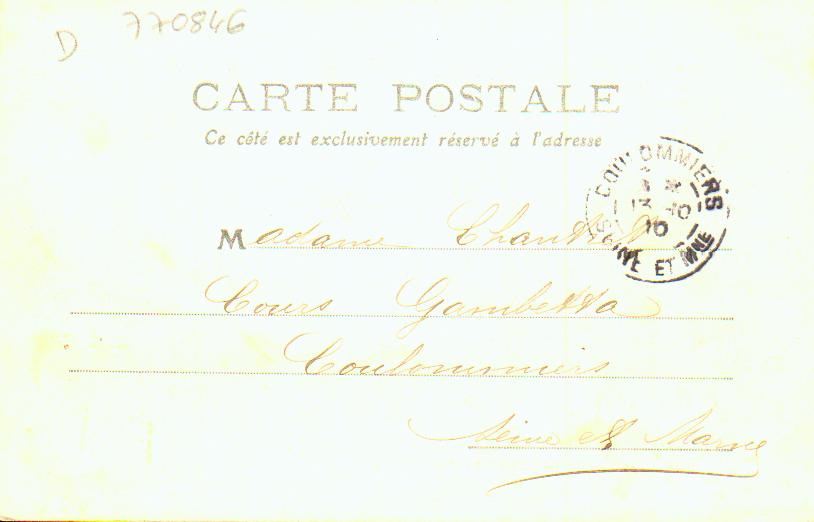 D 770846
CARTE POSTALE
Ce côté est exclusivement réservé à l'adresse
COULOMMIERS
SEINE ET MNE
Madame
Cours Gambetta
Coulommiers
Seine et Marne